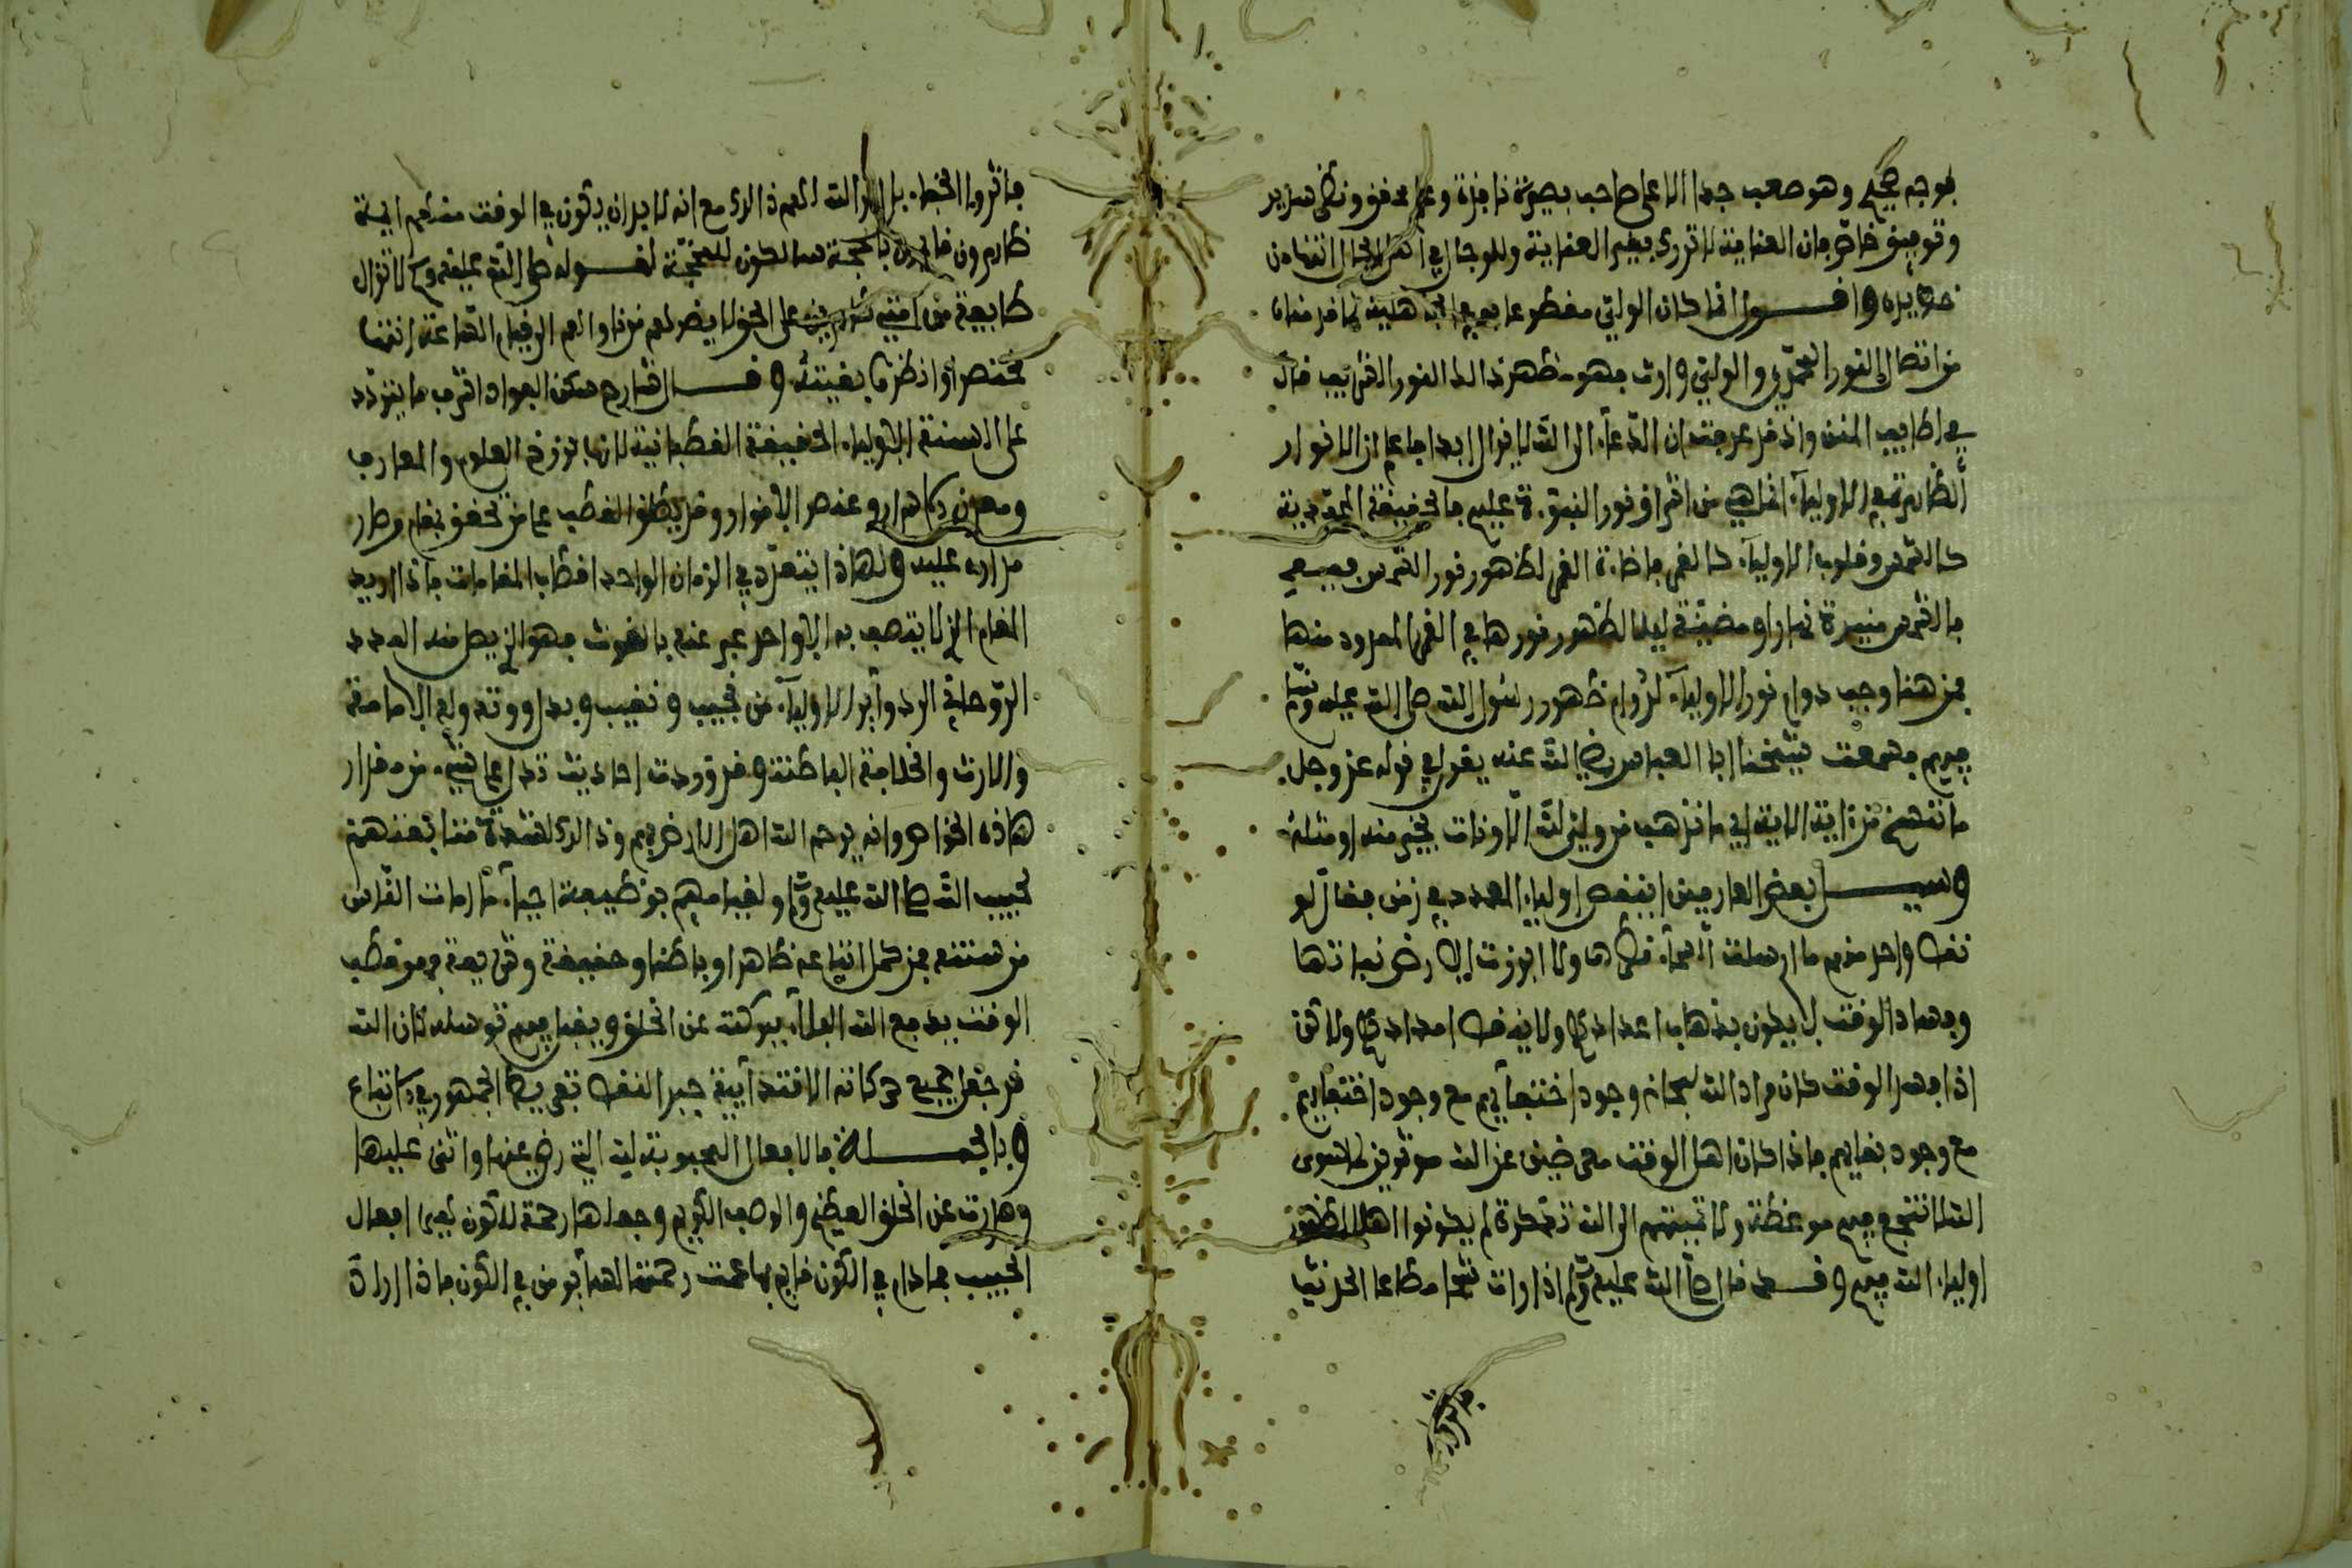 بوجه صحيح وهو صعب جدا الا على صاحب بصيرة نافذة وعلم محقق ونظر سديد
وتوفيق خاص فان العناية لا تدرك بغير العناية وللوجال في اهل الحال انتها من
خط يده واقول انما كان الولي مفطر عا به في الجاهلية لما قدمناه
من اتصال النور المحمدي والولي وارث فهو مظهر ذلك النور الشريف قال
في لطايف المنن وانفد عرفت ان الدعاء الى الله لا يزال ابدا فاعلم ان الانوار
الظاهرة في اولياء انما هي من اشراق نور النبوة عليهم فالحقيقة المحمدية
كالشمس وقلوب الاولياء كالقمر فاضاءة القمر لظهور نور الشمس فيه
فالشمس منيرة نهارا ومضيئة ليلا لظهور نورها في القمر الممدود منها
فمن هنا وجب دوام نور الاولياء لدوام ظهور رسول الله صلى الله عليه وسلم
فيهم فسمعت شيخنا ابا العباس رضي الله عنه يقول في قوله عز وجل
ما ننسخ من اية الاية اي ما نذهب من ولي لله الا ونات بخير منه او مثله
وسيل بعض العارفين اينقص اولياء العدد في زمن فقال لو
نقص واحد منهم ما ارسلت السماء قطرها ولا ابرزت الارض نباتها
وفساد الوقت لا يكون بذهاب اعدادهم ولا بنقص امدادهم ولاكن
اذا فسد الوقت كان مراد الله سبحانه وجود اختفائهم مع وجود اختفايهم
مع وجود بقايهم فاذا كان اهل الوقت معرضين عن الله مؤثرين لما سوى
الله لا تنجع فيهم موعظة ولا تميلهم الى الله تذكرة لم يكونوا اهلا لظهور
اولياء الله فيهم وقد قال صلى الله عليه وسلم اذا رايت شحا مطاعا الحديث
فاثروا الخط بل اراد الله لهم ذلك مع انه لا بد ان يكون في الوقت منهم ايمة
ظاهرون قايمون بالحجة سالكون للمحجة لقوله صلى الله عليه وسلم لا تزال
طايفة من امتي ظاهرين على الحق لا يضرهم من ناواهم الى قيام الساعة انتهى
مختصرا وانظر بقيته وقال شارح سكن الفواد اشرف ما يتردد
على السنة الاولياء الحقيقة القطبانية لانها برزخ العلوم والمعارف
ومعدن الاسرار وعنصر الانوار وقد يطلق القطب على من تحقق بمقام ودار
مداره عليه ولهاذا يتعدد في الزمان الواحد اقطاب المقامات فاذا اريد
المقام الذي لا يتصف به الا واحد عبر عنه بالغوث فهو الذي يصل منه المدد
الروحاني الى دوائر الاولياء من نجيب ونقيب وبدل ووتد وله الامامة
والارث والخلافة الباطنة وقد وردت احاديث تدل على شيء من مقدار
هاذه الخواص وانه يرحم الله اهل الارض بهم وذلك لشدة متابعتهم
لحبيب الله صلى الله عليه وسلم ولقيامهم بوظيفة احياء ما امات الناس
من سنته فمن كمل اتباعه ظاهرا وباطنا وحقيقة وشريعة فهو قطب
الوقت يدفع الله البلاء ببركته عن الخلق ويقبل فيهم توسله كان الله
قد جعل جميع حركاته الاقتدائية جبر النقص تفريط الجمهور في الاتباع
وبالجملة فالافعال المحبوبة لله التي رضي عنها واثنى عليها
وصارت عن الخلق العظيم والوصف الكريم وجعلها رحمة للكون بغير افعال
الحبيب فما دام في الكون قايم بها عمت رحمته الله ابو من في الكون فاذا اراد